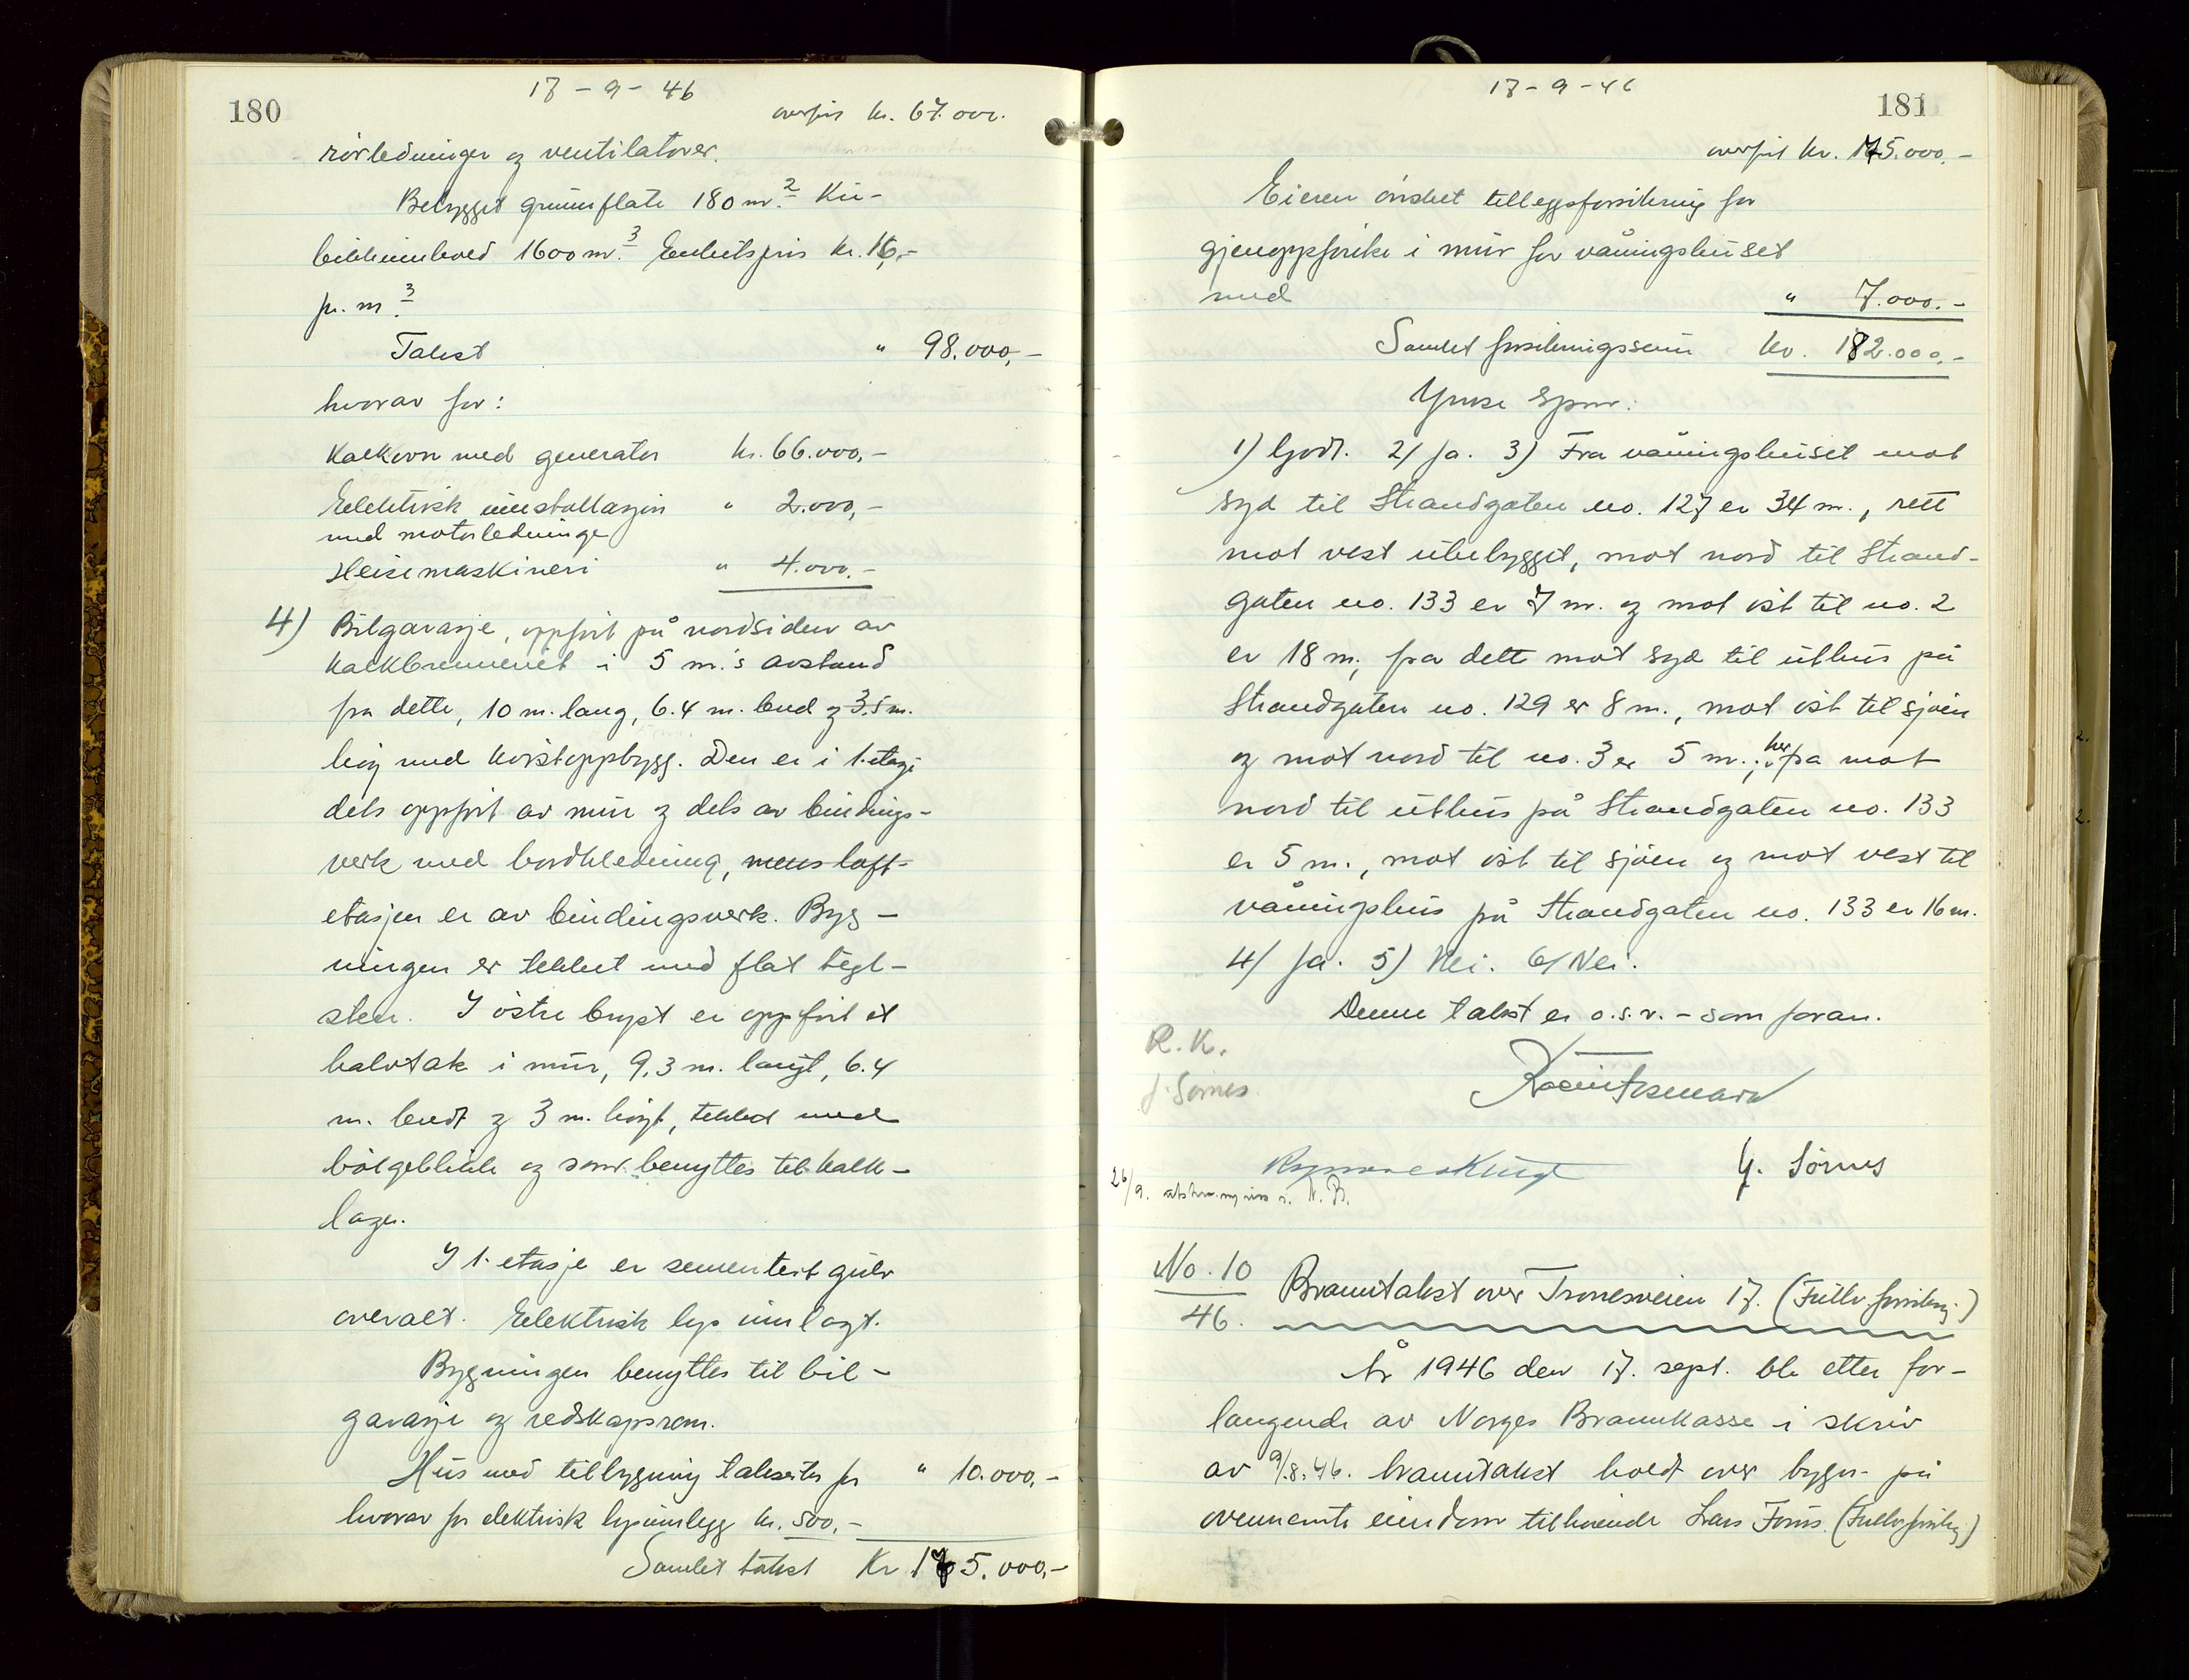 180
17-9-46
overført kr. 67.000.
rørledninger og ventilatorer.
Bebygget grunnflate 180 m². Ku-
bikkinnhold 1600 m³. Enhetspris kr. 16,-
pr. m³.
Takst " 98.000,-
hvorav for:
Kalkovn med generator kr. 66.000,-
Elektrisk installasjon " 2.000,-
med motorledninger
Heisemaskineri " 4.000.-
4) Bilgarasje, oppført på nordsiden av
kalkbrenneriet i 5 m.'s avstand
fra dette, 10 m. lang, 6.4 m. bred og 3.5 m.
høy med kvistoppbygg. Den er i 1. etasje
dels oppført av mur og dels av bindings-
verk med bordkledning, mens loft-
etasjen er av bindingsverk. Byg-
ningen er tekket med flat tegl-
sten. I østre bryst er oppført et
halvtak i mur, 9.3 m. langt, 6.4
m. bredt og 3 m. høyt, tekket med
bølgeblikk og som benyttes til kalk-
lager.
I 1. etasje er sementert gulv
overalt. Elektrisk lys innlagt.
Bygningen benyttes til bil-
garasje og redskapsrom.
Hus med tilbygning takseres for " 10.000,-
hvorav for elektrisk lysinnlegg kr. 500,-
Samlet takst Kr 175.000,-
17-9-46
181
overført kr. 175.000,-
Eieren ønsket tilleggsforsikring for
gjenoppførelse i mur for våningshuset
med " 7.000.-
Samlet forsikringssum kr. 182.000,-
Ymse Spm:
1) Godt. 2) Ja. 3) Fra våningshuset mot
syd til Strandgaten no. 127 er 34 m., rett
mot vest ubebygget, mot nord til Strand-
gaten no. 133 er 7 m. og mot øst til no. 2
er 18 m; fra dette mot syd til uthus på
Strandgaten no. 129 er 8 m., mot øst til sjøen
og mot nord til no. 3 er 5 m.; herfra mot
nord til uthus på Strandgaten no. 133
er 5 m., mot øst til sjøen og mot vest til
våningshus på Strandgaten no. 133 er 16 m.
4) Ja. 5) Nei. 6) Nei.
Denne takst er o.s.v. - som foran.
R.K.
J. Sørnes
G. Sørnes
26/9. N.B.
No. 10
46.
Branntakst over Tronesveien 17. (Fullv. forsikring.)
År 1946 den 17. sept. ble etter for-
langende av Norges Brannkasse i skriv
av 9/8.46. branntakst holdt over bygn. på
ovennevnte eiendom tilhørende Lars (Fullv. forsikring)